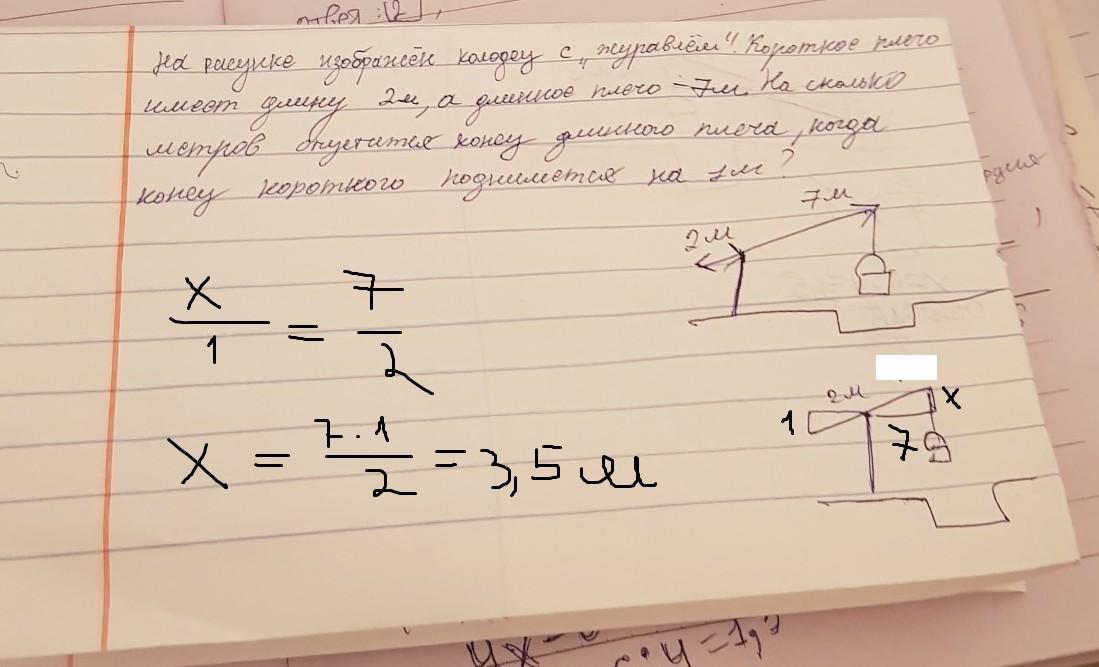 На рисунке изображён колодец с „журавлём". Короткое плечо
имеет длину 2м, а длинное плечо – 7м. На сколько
метров опустится конец длинного плеча, когда
конец короткого поднимется на 1м?
7м
2м
x/1 = 7/2
2м
1
x
7
x = 7·1/2 = 3,5 м